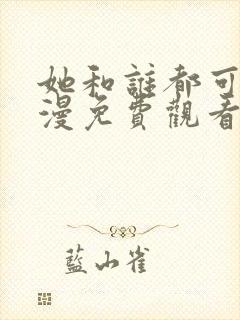 她和誰都可
漫免費觀看
藍山雀